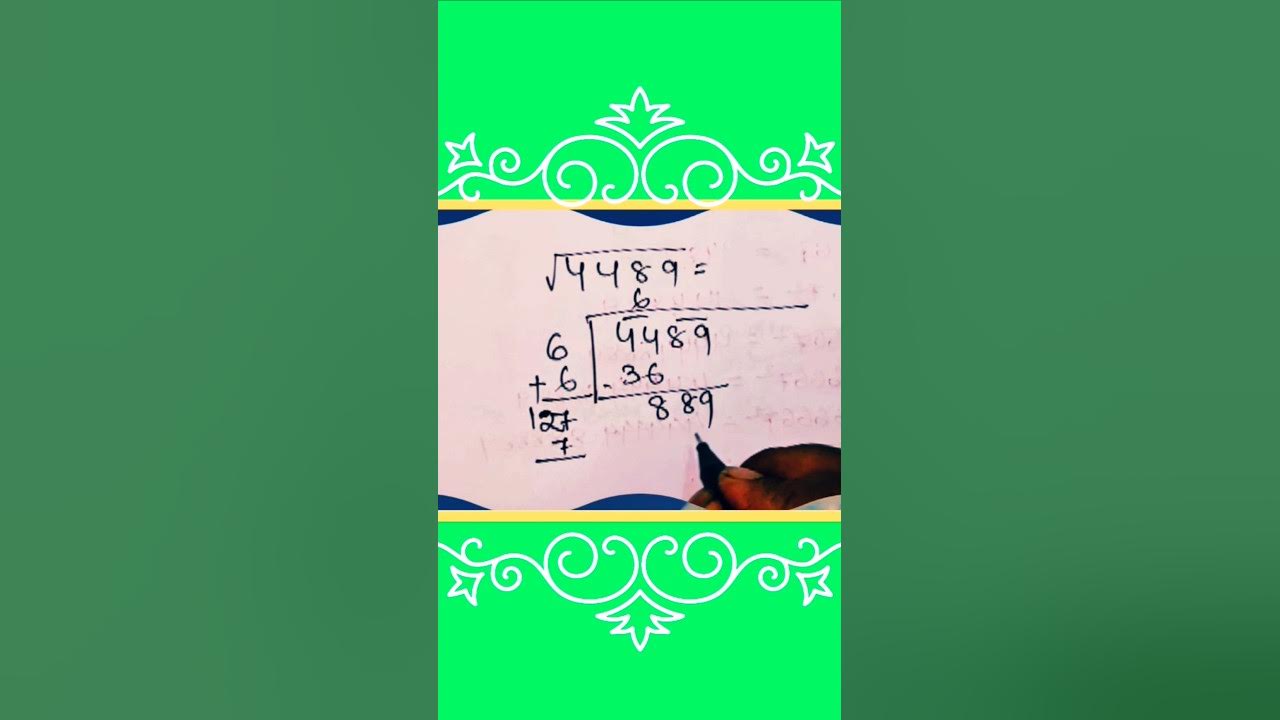 √4489 =
6
6 4489
+ 6 36
127 889
7